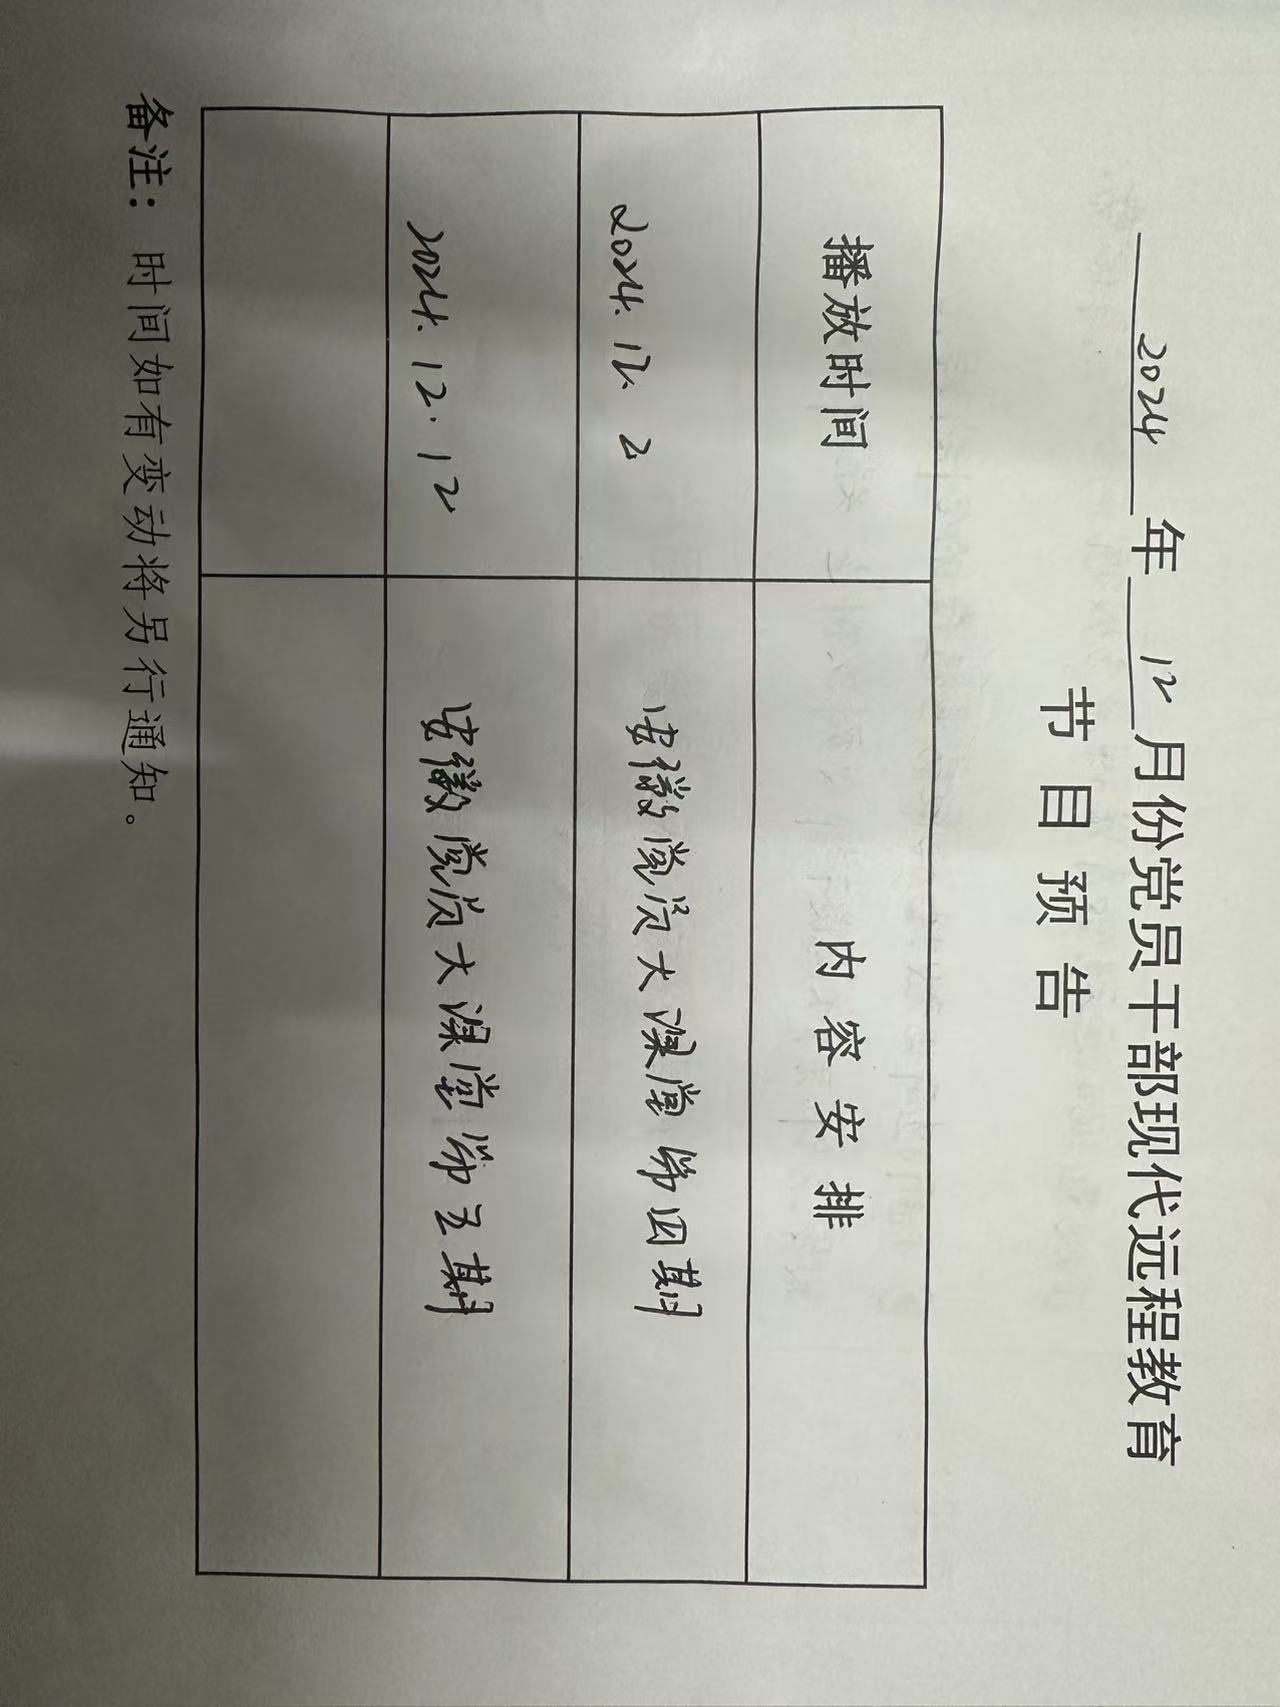 2024年12月份党员干部现代远程教育
节目预告
播放时间 内容安排
2024.12.2 安徽党员大课堂第四期
2024.12.12 安徽党员大课堂第五期
备注：时间如有变动将另行通知。